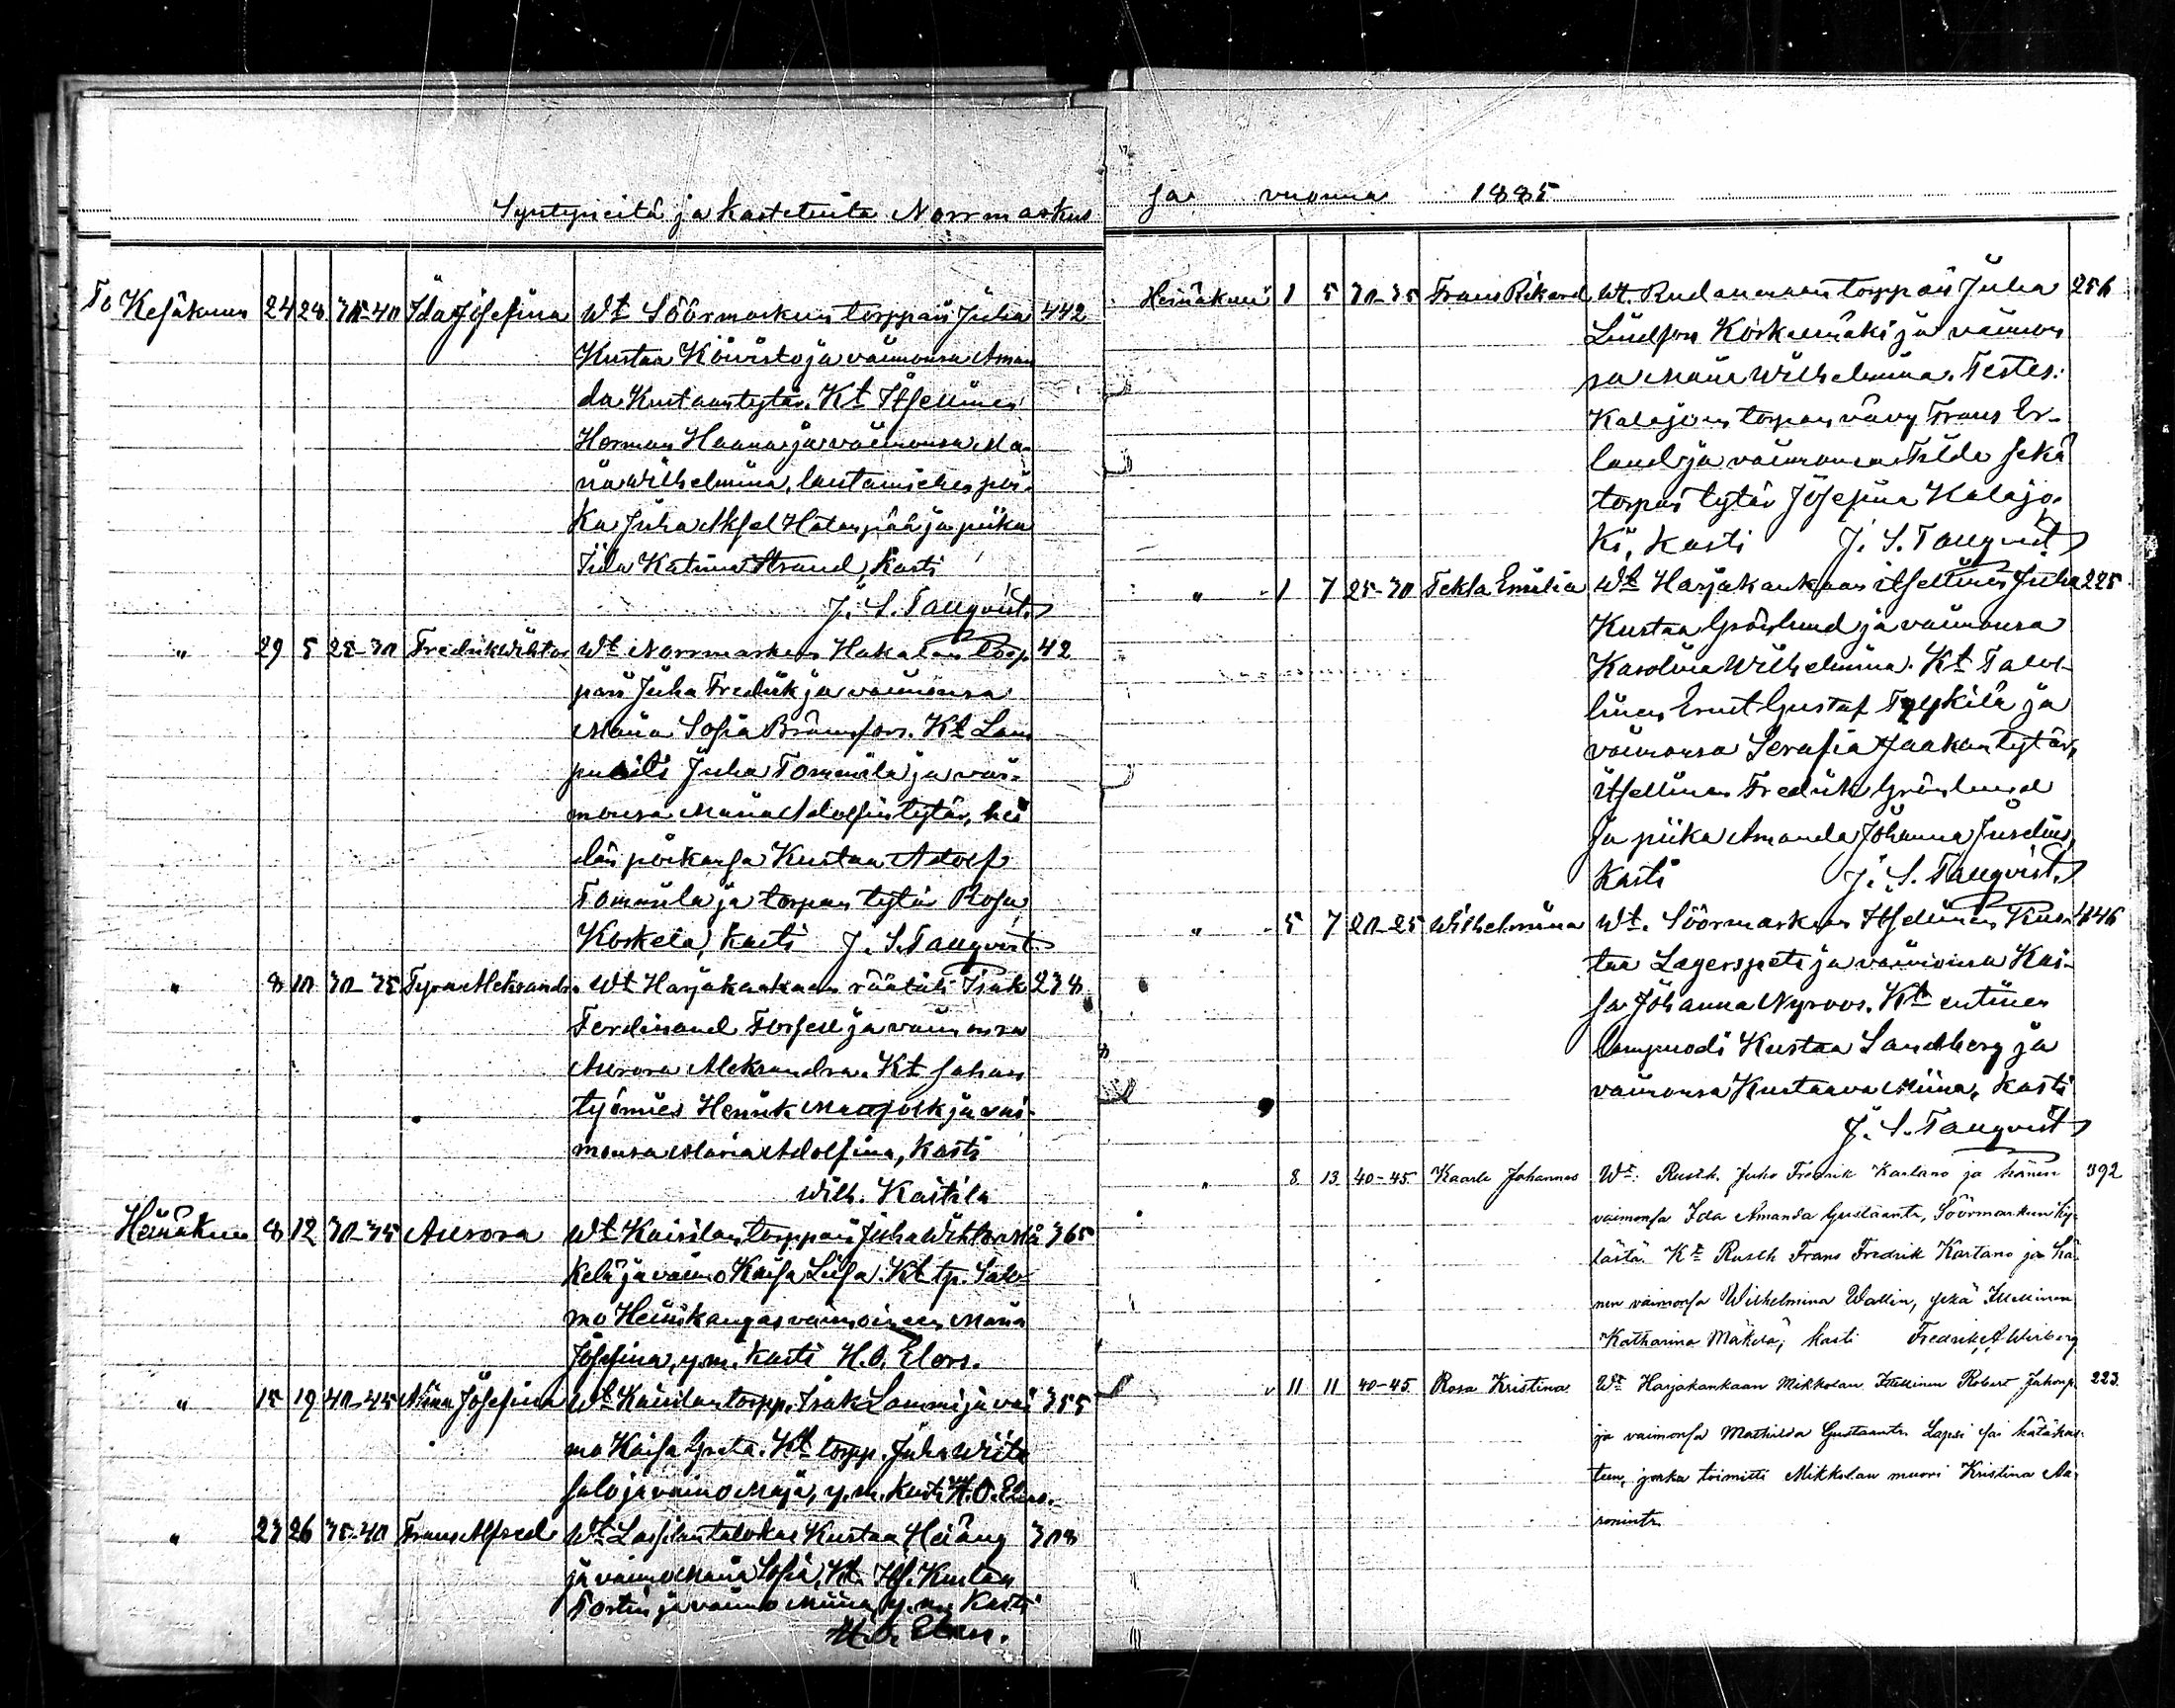 Syntyneitä ja kastetuita Norrmarkus
To Kesäkuun 24 28 35-40 Ida Josefina Wt Söörmarkun torppari Juha 442
Kustaa Koivisto ja vaimonsa Aman
da Kustaantytär. Kt Itsellinen
Herman Haana ja vaimonsa Ma-
ria Wilhelmina, lautamiehen poi-
ka Juha Aksel Hatanpää ja piika
Iida Katrina Strand, Kasti
J. S. Tanqvist
" 29 5 25-30 Fredrik Wihtor Wt Norrmarkun Hakalan torp 42
pari Juha Fredrik ja vaimonsa
Maria Sofia Brunfors. Kt Lam
puoti Juha Tommila ja vai-
monsa Maria Adolfintytär, hei
dän poikansa Kustaa Adolf
Tommila ja torpan tytär Rosa
Koskela, kasti J. S. Tanqvist
" 8 10 30-35 Tyra Aleksandra Wt Harjakankaan räätäli Isak 238
Ferdinand Forsell ja vaimonsa
Aurora Aleksandra. Kt sahan
työmies Henrik ja vai-
monsa Maria Adolfina, Kasti
Wilh. Kaitila
Heinäkuu 8 12 30-35 Aurora Wt Kairilan torppari Juha Wihtori Mä 365
kelä ja vaimo Kaisa Liisa. Kt tp. Salo
mo Heinikangas vaimoineen Maria
Josefina, y.m. Kasti H. O. Elors.
" 15 19 40-45 Niina Josefina Wt Kairilan torpp. Isak Lammi ja vai 355
mo Kaisa Greta. Kt torpp. Juha Wiita
salo ja vaimo Maja, y.m. Kasti H. O. Elors.
" 23 26 35-40 Frans Alfred Wt Lassilan talokas Kustaa Haäng 308
ja vaimo Maria Sofia, Kt. Its. Kustaa
Fortin ja vaimo Miina y.m. Kasti
H. O. Elors.
sa vuonna 1885
Heinäkuu 1 5 30-35 Frans Rikard Wt. Rudanmaan torppari Juha 256
Lindfors Koskenmäki ja vaimon
sa Maria Wilhelmina. Testes:
Kalajoen torpan vävy Frans Er-
land ja vaimonsa Tilda sekä
torpan tytär Josefina Kalajo-
ki, kasti J. S. Tanqvist
" 1 7 25-30 Tekla Emilia Wt Harjakankaan itsellinen Juha 225
Kustaa Grönlund ja vaimonsa
Karolina Wilhelmina. Kt Talol-
linen Ernst Gustaf Tyykilä ja
vaimonsa Serafia Jaakontytär,
itsellinen Fredrik Grönlund
ja piika Amanda Johanna Juselius,
Kasti J. S. Tanqvist
" 5 7 20-25 Wilhelmiina Wt. Söörmarkun Itsellinen Kus- 446
taa Lagerspets ja vaimonsa Kai-
sa Johanna Nyroos. Kt entinen
lampuodi Kustaa Sandberg ja
vaimonsa Kustaava Miina, Kasti
J. S. Tanqvist
" 8 13 40-45 Kaarle Johannes Wt. Rusth. Juho Fredrik Kartano ja hänen 392
vaimonsa Ida Amanda Gustaantr, Söörmarkun ky-
lästä. Kt Rusth Frans Fredrik Kartano ja hä-
nen vaimonsa Wilhelmina Wallin, sekä Itsellinen
Katharina Mäkelä; kasti Fredrik A. Wirberg
" 11 11 40-45 Rosa Kristina Wt Harjakankaan Mikkolan Itsellinen Robert Johanp. 223
ja vaimonsa Mathilda Gustaantr. Lapsi sai hätäkas-
teen, jonka toimitti Mikkolan muori Kristina Aa-
ronintr.